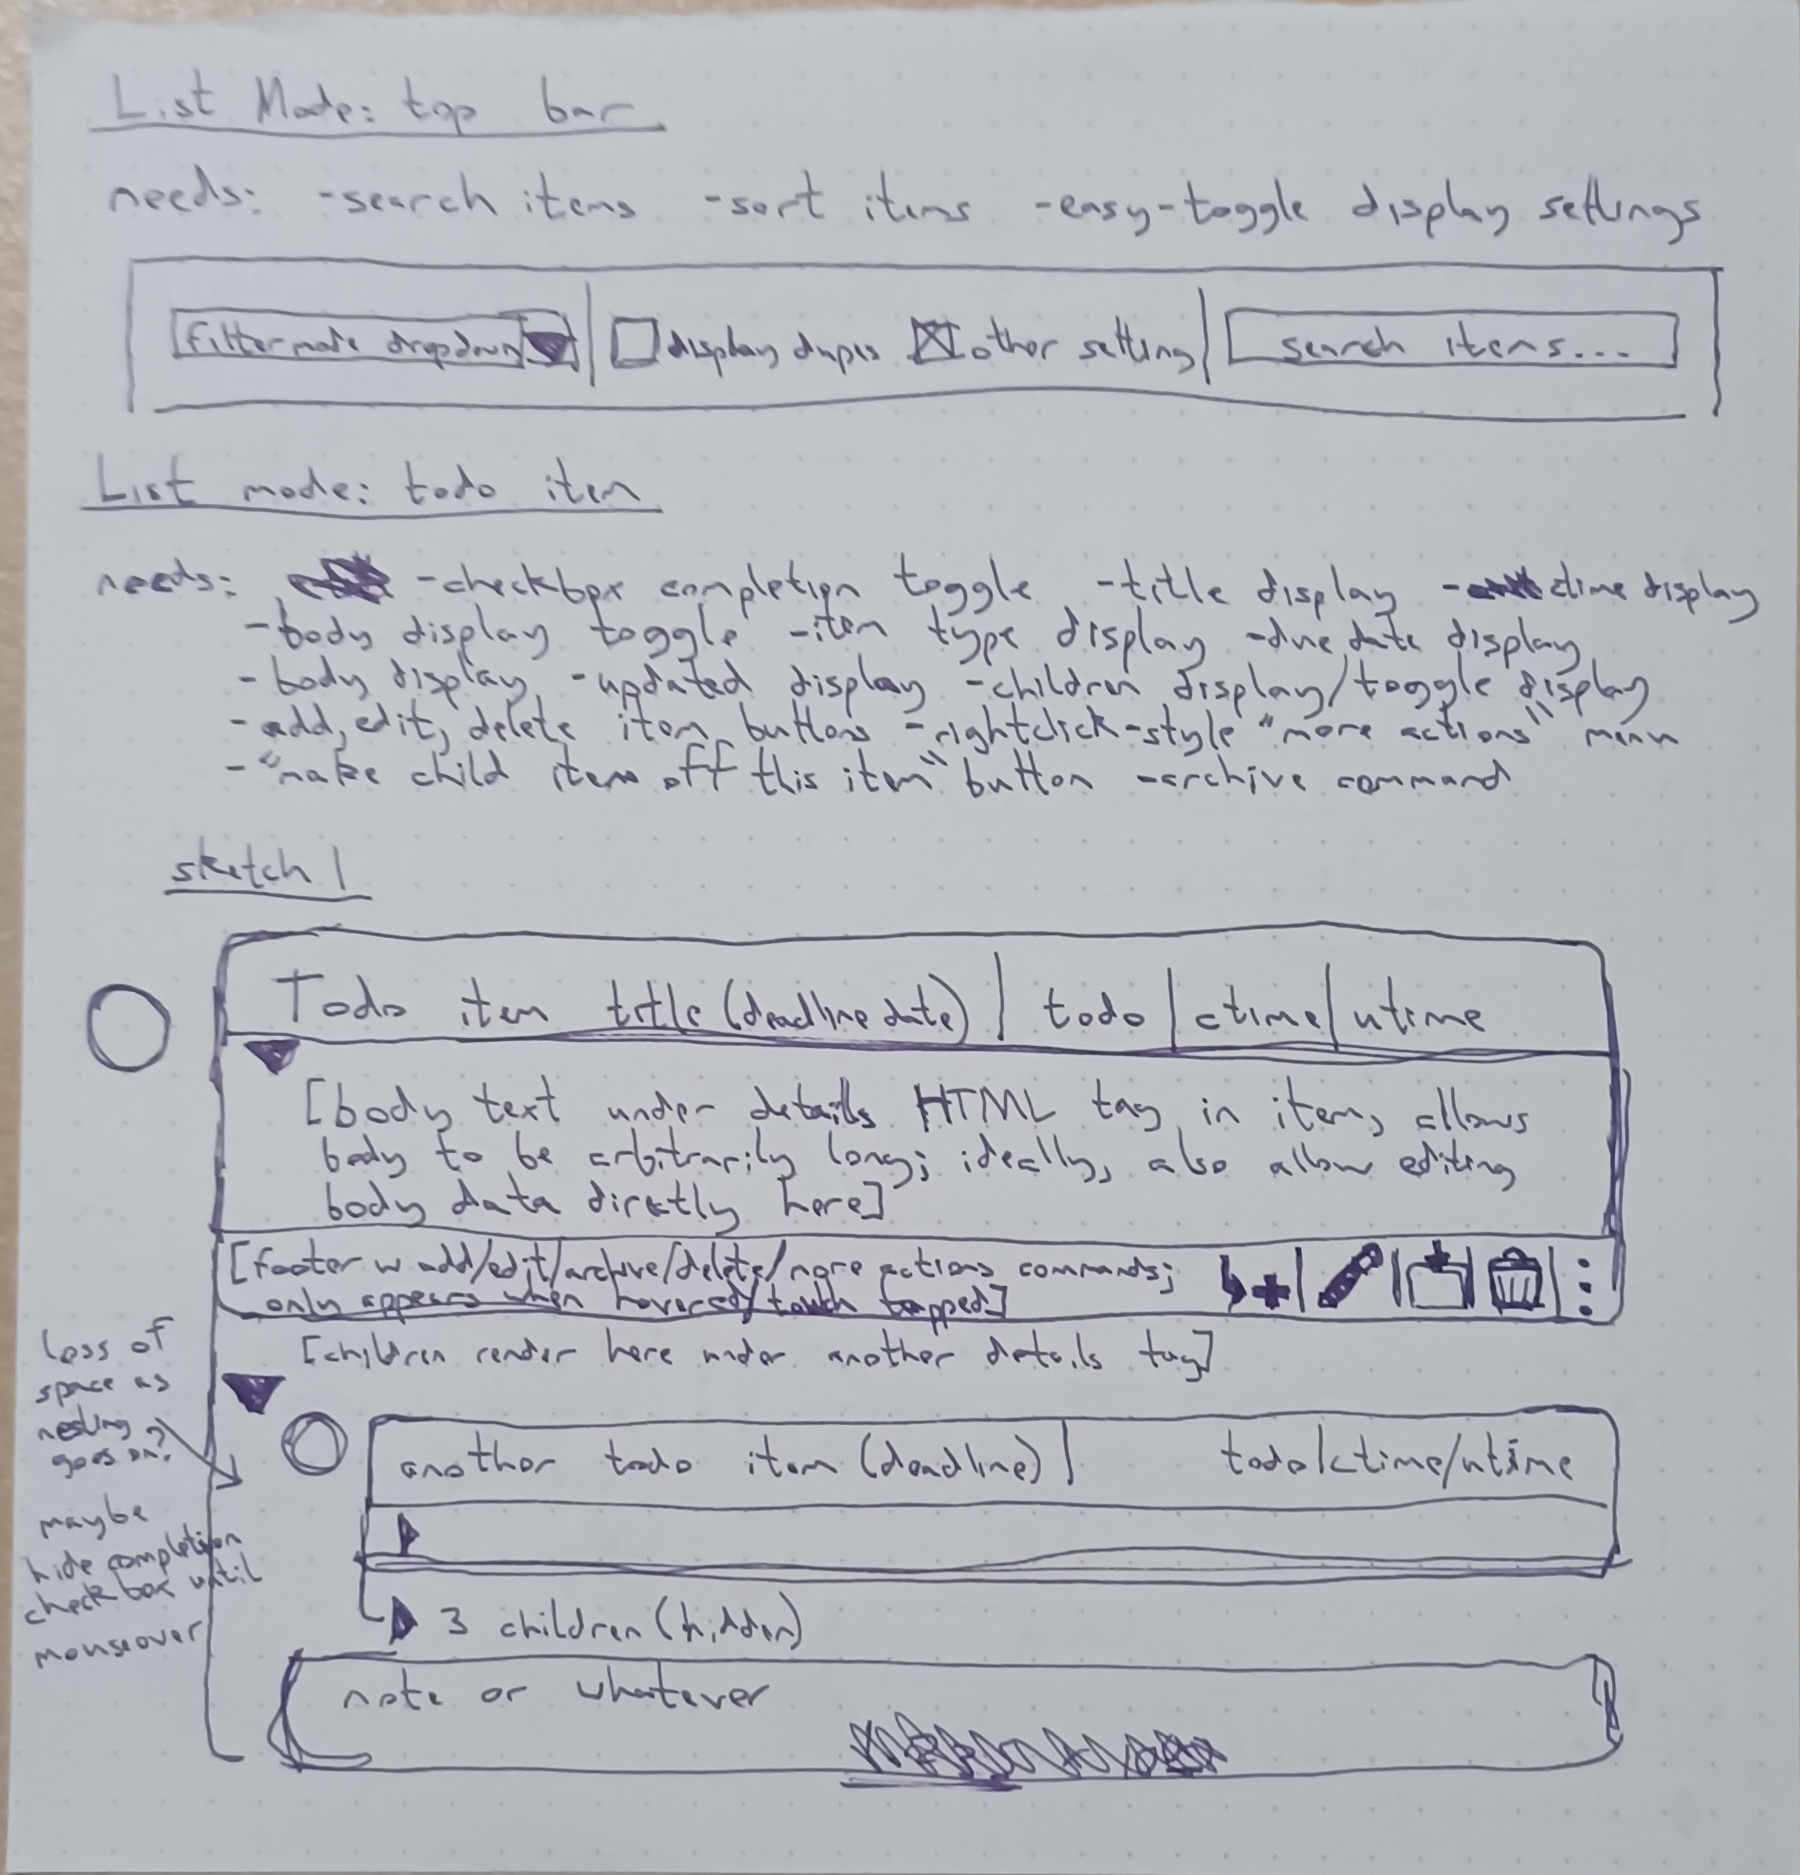 List Mode: top bar
needs: -search items -sort items -easy-toggle display settings
filter mode dropdown display dupes other setting search items...
List mode: todo item
needs: -checkbox completion toggle -title display -ctime display
-body display toggle -item type display -due date display
-body display -updated display -children display/toggle display
-add, edit, delete item buttons -rightclick-style "more actions" menu
-"make child item off this item" button -archive command
sketch 1
Todo item title (deadline date) | todo | ctime/utime
[body text under details HTML tag in item, allows
body to be arbitrarily long; ideally, also allow editing
body data directly here]
[footer w add/edit/archive/delete/more actions commands;
only appears when hovered/touch tapped]
[children render here under another details tag]
loss of
space as
nesting
goes on?
maybe
hide completion
checkbox until
mouseover
another todo item (deadline) | todo|ctime/utime
3 children (hidden)
note or whatever